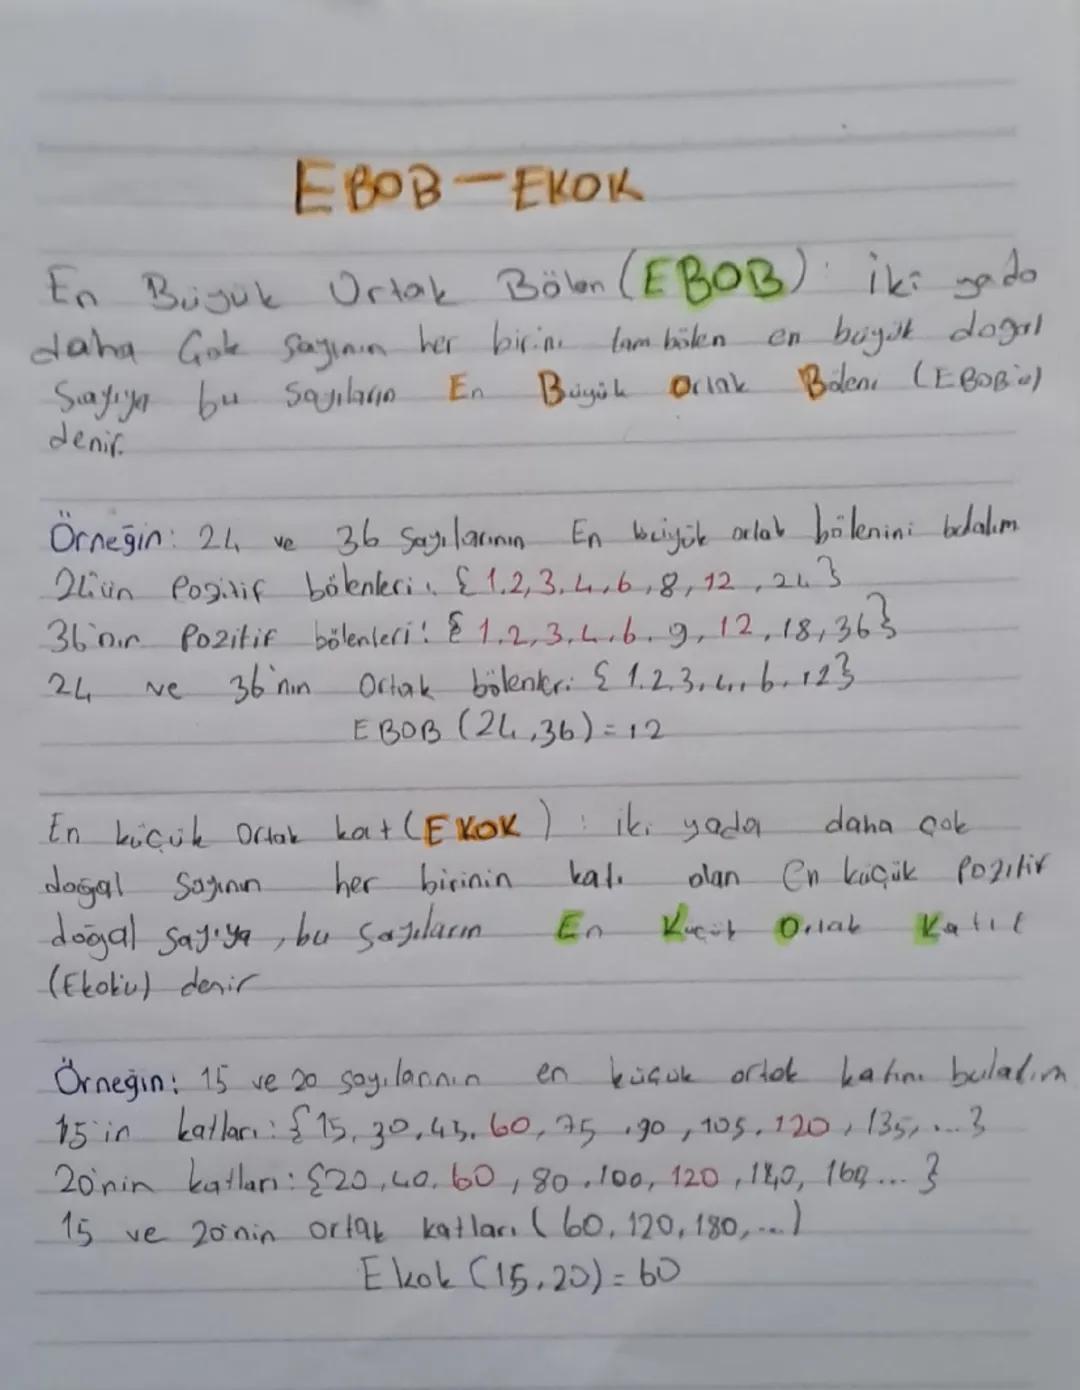 EBOB-EKOK
En Büyük Ortak Bölen (EBOB): iki yada
daha Çok sayının her birini tam bölen en büyük doğal
Sayıya bu sayıların En Büyük Ortak Böleni (EBOB'u)
denir.
Örneğin: 24 ve 36 Sayılarının En büyük ortak bölenini bulalım
24'ün Pozitif bölenleri: {1,2,3,4,6,8,12,24}
36'nın Pozitif bölenleri: {1,2,3,4,6,9,12,18,36}
24 ve 36'nın Ortak bölenleri {1,2,3,4,6,12}
EBOB (24,36)=12
En küçük Ortak kat (EKOK): iki yada daha çok
doğal Sayının her birinin katı olan En küçük Pozitif
doğal sayıya, bu sayıların En Küçük Ortak Katı
(Ekoku) denir
Örneğin: 15 ve 20 sayılarının en küçük ortak katını bulalım
15'in katları: {15,30,45,60,75,90,105,120,135,...}
20'nin katları: {20,40,60,80,100,120,140,160...}
15 ve 20'nin ortak katları (60,120,180,...)
Ekok (15,20)=60